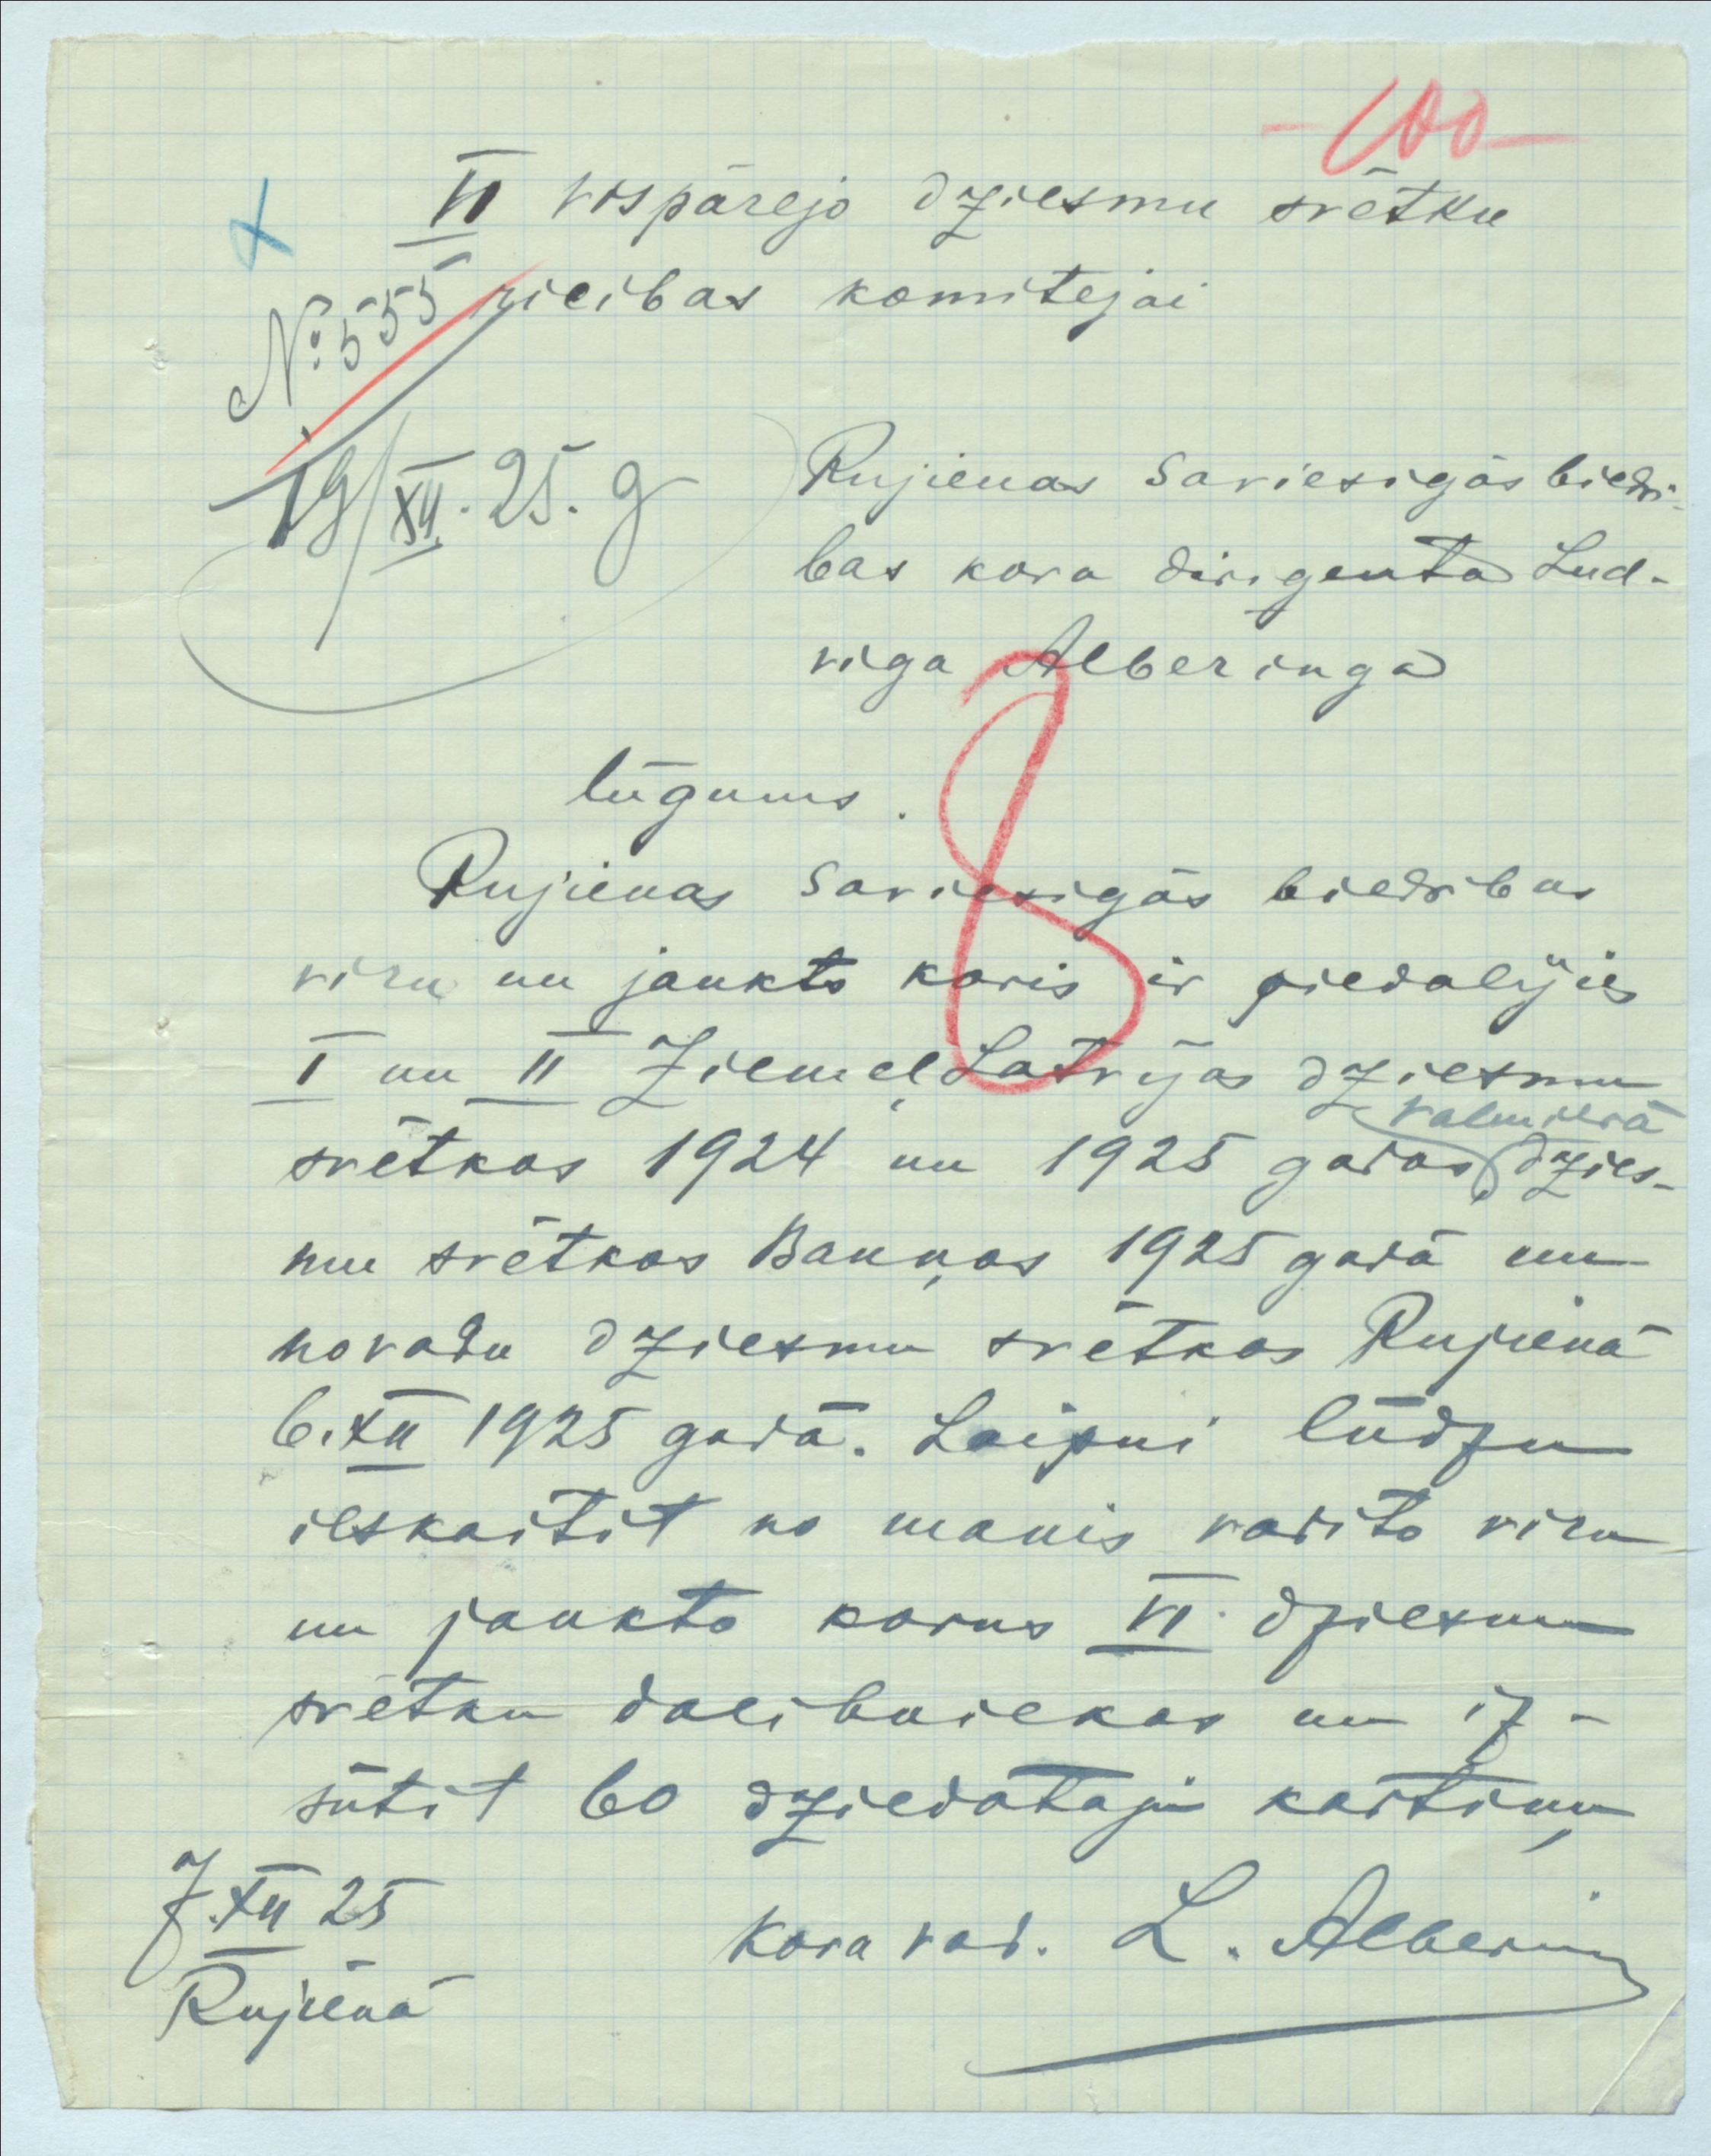 -100-
VI vispārejo dziesmu svētku
rīcibas komitejai
№ 555
19/XII. 25. g
Rujienas Saviesigās biedri-
bas kora dirigenta Lud-
viga Alberinga
lūgums.
8
Rujienas Saviesigās biedribas
viru un jaukts koris ir piedalijies
I un II ZiemeļLatvijas dziesmu
Valmierā
svētkos 1924 un 1925 gados, dzies-
mu svētkos Bauņos 1925 gadā un
novadu dziesmu svētkos Rujienā
6.XII 1925 gadā. Laipni lūdzu
ieskaitit no manis vadito viru
un jaukto korus VI dziesmu
svētku dalibniekos un iz-
sūtit 60 dziedātaju kartiņu
7.XII 25
Rujienā
Kora vad. L. Albering